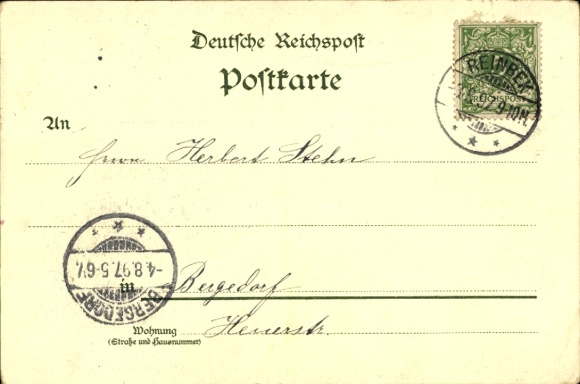 Deutsche Reichspost
Postkarte
REINBEK
97 9-10N.
REICHSPOST
An
Herrn Herbert Stehn
-4.8.97.5-6V.
BERGEDORF
in Bergedorf
Wohnung
(Straße und Hausnummer)